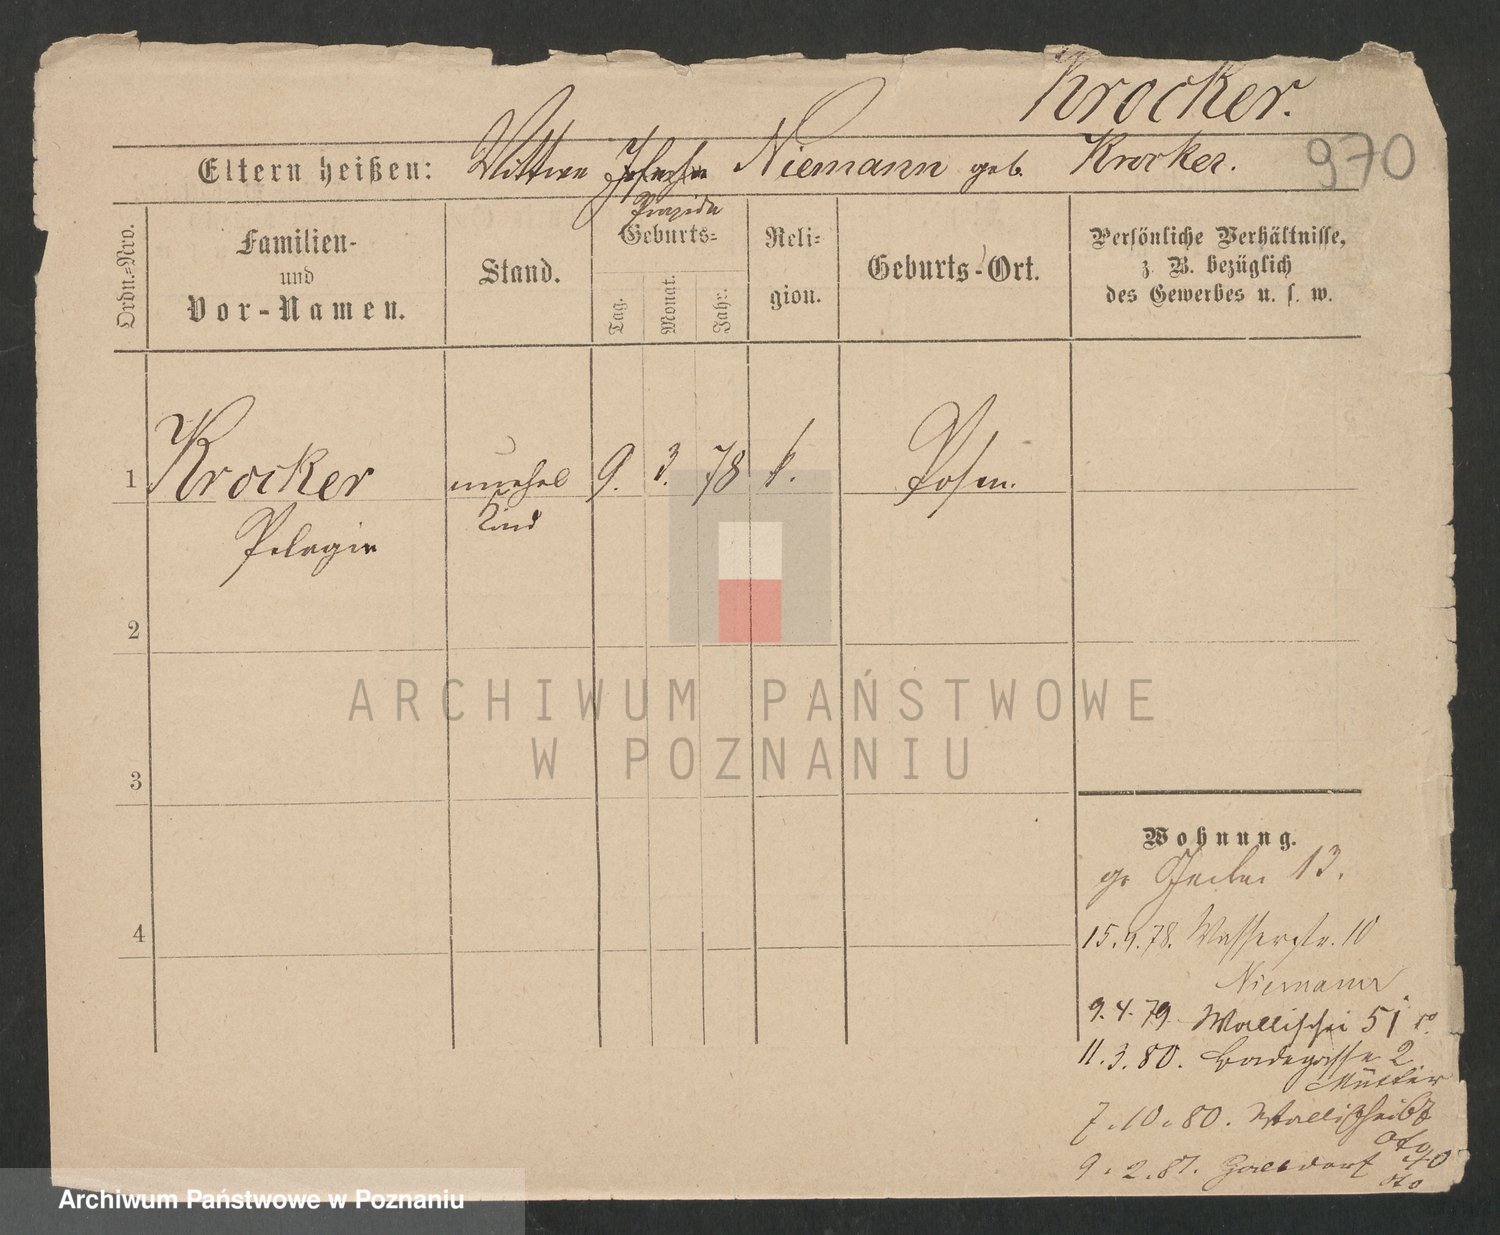 Krocker.
970
Eltern heißen: Wittwe Josepha Niemann geb. Krocker.
Ordn.-Nro.
Familien-
und
Vor-Namen.
Stand.
Geburts-
Tag.
Monat.
Jahr.
Reli-
gion.
Geburts-Ort.
Persönliche Verhältnisse,
z. B. bezüglich
des Gewerbes u. s. w.
1 Krocker unehel 9. 3. 78 k. Posen.
Pelagia Kind
2
3
4
Wohnung.
gr Gerber 13.
15.9.78. Wasserstr. 10
Niemann
9.4.79 Wallischei 51
11.3.80. Badegasse 2
Mutter
7.10.80. Wallischei 67
9.2.81.
ARCHIWUM PAŃSTWOWE
W POZNANIU
Archiwum Państwowe w Poznaniu